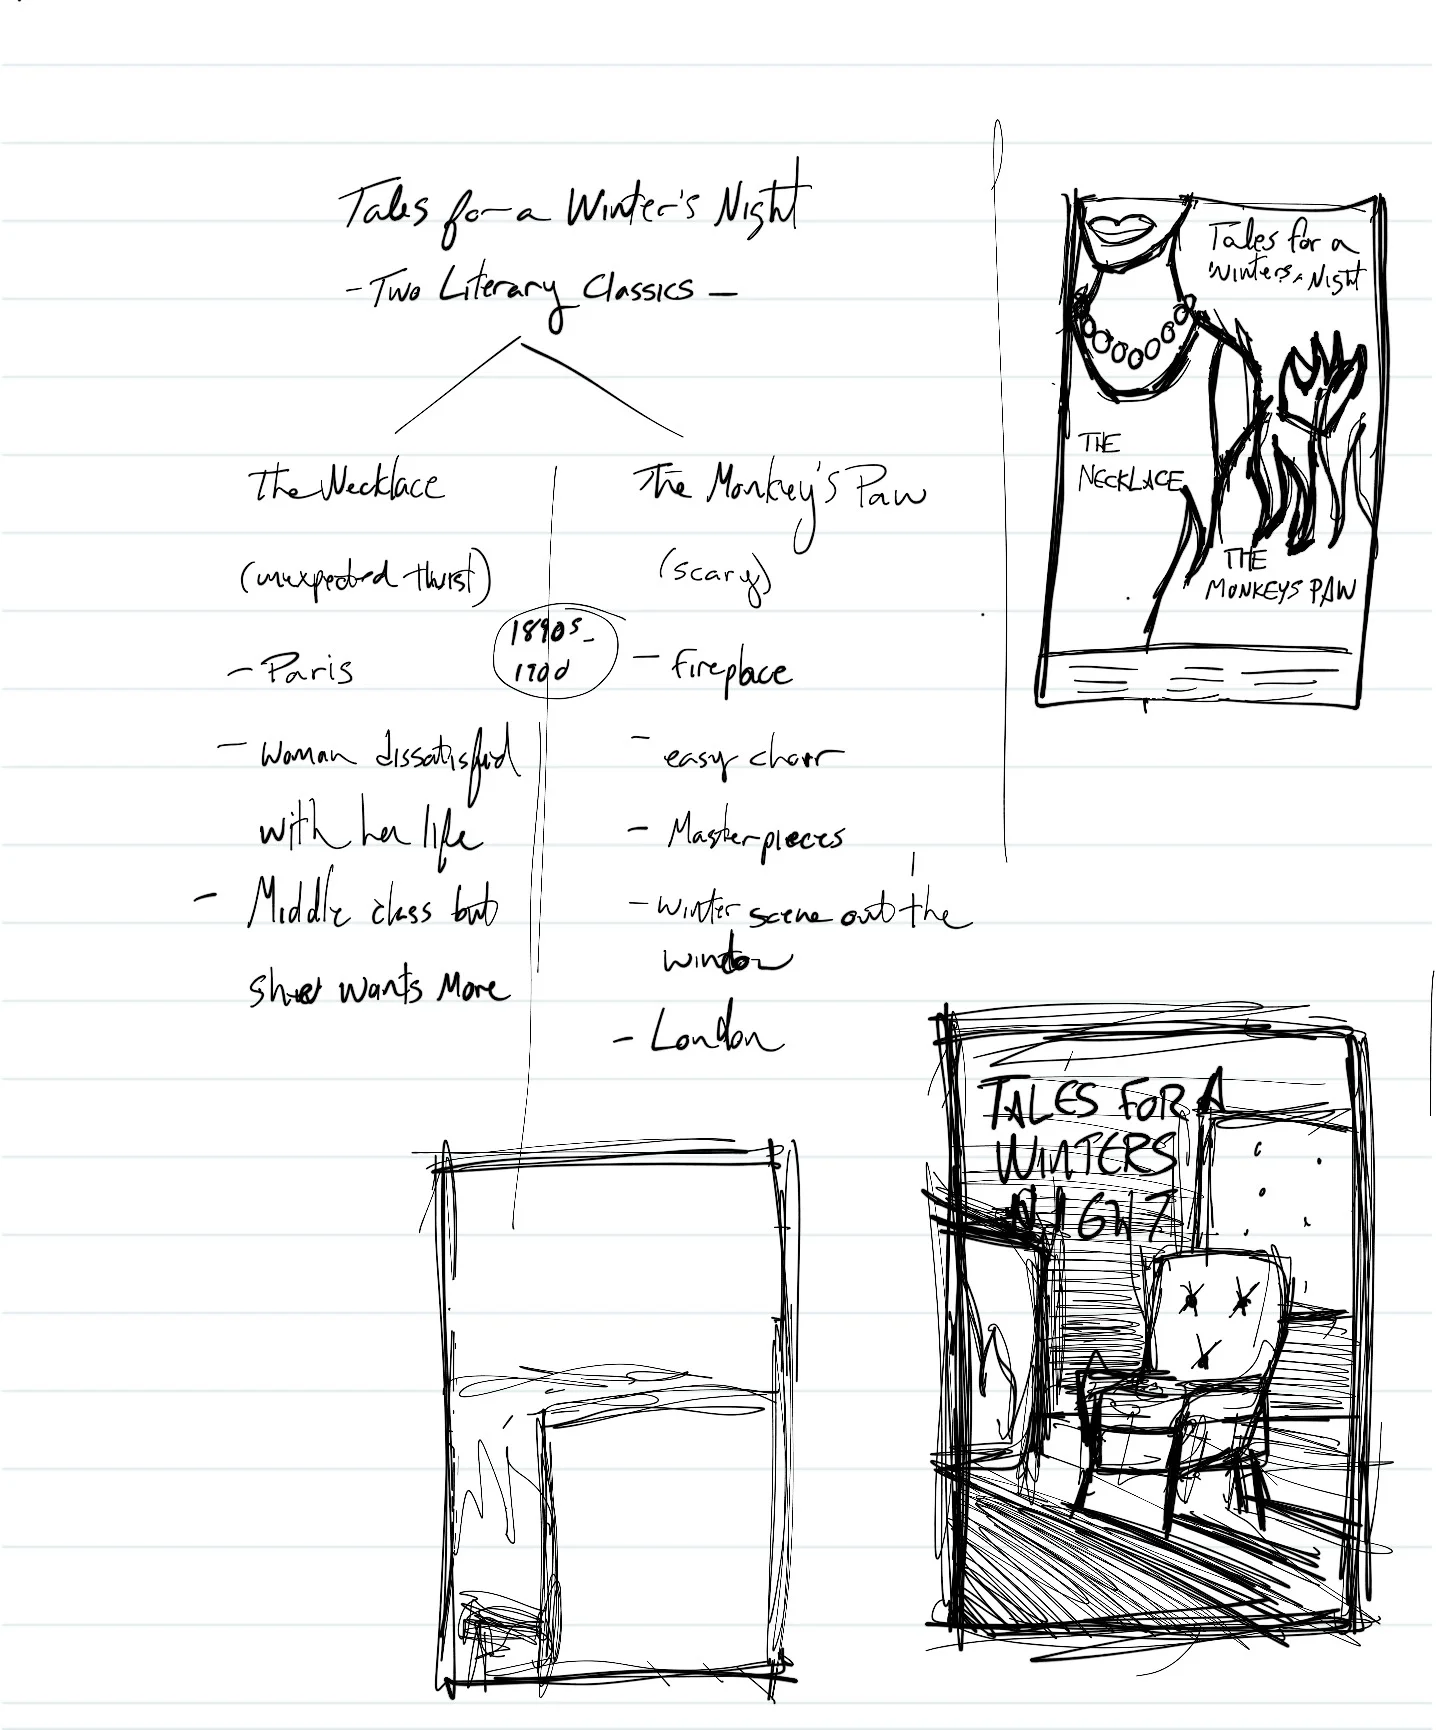 Tales for a Winter's Night
- Two Literary Classics -
The Necklace
(unexpected thwist)
- Paris
- Woman dissatisfied
with her life
- Middle class but
she wants More
1890s -
1900
The Monkey's Paw
(scary)
- fireplace
- easy chair
- Masterpieces
- winter scene out the
window
- London
Tales for a
Winters Night
THE
NECKLACE
THE
MONKEYS PAW
TALES FOR A
WINTERS
NIGHT